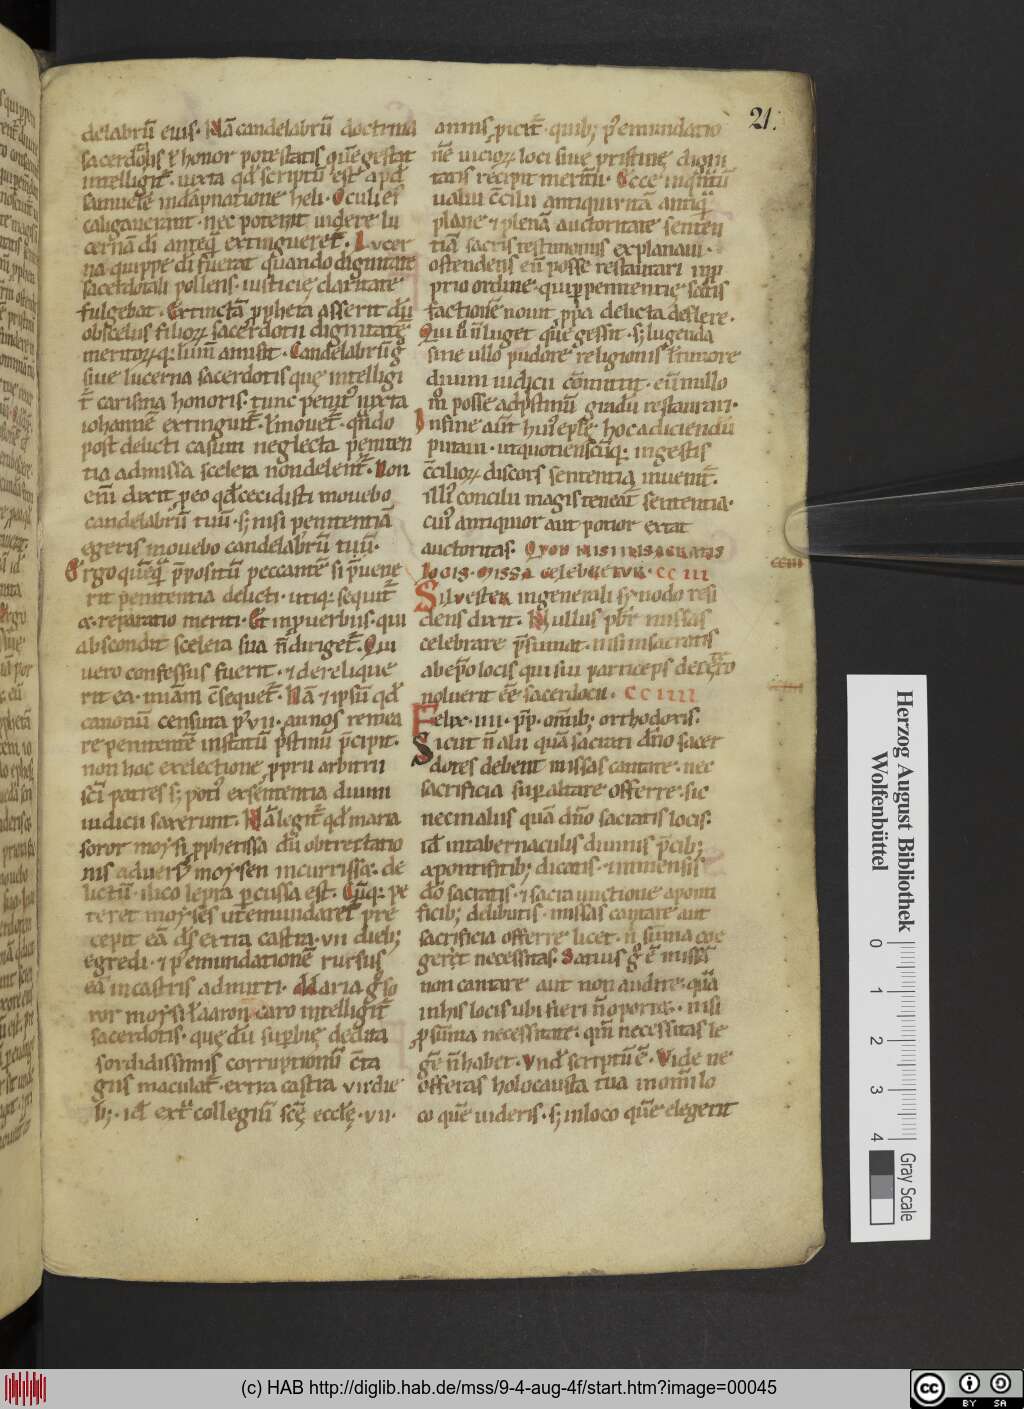 21.
delabrū eius. Nā candelabrū doctrina
sacerdotis ł honor potestatis quē gestat
intelligit̄. iuxta qd̄ scriptū est apd̄
samuelē in dāpnatione heli. Oculi ei᷒
caligauerant. nec poterat uidere lu
cernā dī anteq̄ extingueret̄. Lucer
na quippe dī fuerat quando dignitate
sacerdotali pollens. iusticię claritate
fulgebat. Extinctā ꝓpheta asserit dū
ob scelus filioꝝ sacerdotii dignitatē
meritoꝝ q; lumē amisit. Candelabrū g̊
siue lucerna sacerdotis quę intelligi
t̄ carisma honoris. tunc penit᷒ iuxta
iohannē extinguit̄. ł mouet̄. qn̄do
post delicti casum neglecta peniten
tia admissa scelera non deflent̄. Non
enī dixit ꝑ eo qd̄ cecidisti mouebo
candelabrū tuū. s; nisi penitentiā
egeris mouebo candelabrū tuū.
Ergo quēq̄ p̄positū peccantē si p̄uene
rit penitentia delicti. utiq; sequit̄
& reparatio meriti. Et in ꝓuerbiis. qui
abscondit scelera sua n̄ diriget̄. Qui
uero confessus fuerit. ⁊ derelique
rit ea. miam̄ c̄sequet̄. Nā ⁊ ipsū qd̄
canonū censura p᷒ vii. annos remea
re penitentē in statū p̄stinū p̄cipit.
non hoc ex electione ꝓprii arbitrii
sc̄i patres s; poti᷒ ex sententia diuini
iudicii saxerunt. Nā legit̄ qd̄ maria
soror moysi ꝓphetissa dū obtrectatio
nis aduers᷒ moysen incurrisset de
lictū. ilico lepra ꝑcussa est. Cūq; pe
teret moyses ut emundaret̄ pre
cepit eā ds̄ extra castra. vii dieb;
egredi. ⁊ p᷒ emundationē rursus
eā in castris admitti. Maria g̊ so
ror moysi ł aaron caro intelligit̄
sacerdotis. quę dū suꝑbię dedita
sordidissimis corruptionū c̄ta
giis maculat̄. extra castra vii die
b;. id̄ extᵃ collegiū sc̄ę eccłę. vii.
annis ꝓicit̄. quib; p᷒ emundatio
nē uicioꝝ loci siuę pristinę digni
tatis recipit meritū. Ecce inquātū
ualui c̄cilii antiquitatē antiq̄
planę ⁊ plenā auctoritate senten
tiā sacris testimoniis explanaui.
ostendens eū posse restaurari in ꝓ
prio ordine. qui ꝑ penitentię satis
factionē nouit ꝓpa delicta deflere.
Qui ū n̄ luget quę gessit. s; lugenda
sine ullo pudore religionis ł timore
diuini iudicii cōmittit. eū nullo
m̊ posse ad p̄stinū gradū restaurari.
In fine aūt hui᷒ ep̄lę hoc adiciendū
putaui. ut quotienscūq; in gestis
c̄cilioꝝ discors sententia inuenit̄.
illi᷒ concilii magis teneat̄ sententia.
cui᷒ antiquior aut potior extat
auctoritas. Quod nisi in sacratis
locis. missa celebretur. cciii
Siluester in generali synodo resi
dens dixit. Nullus pb̄r missas
celebrare p̄sumat. nisi in sacratis
ab ep̄o locis qui sui particeps de cetero
noluerit ēe sacerdocii. cciiii
Felix. iiii. pp̄. om̄ib; orthodoxis.
Sicut n̄ alii quā sacrati dn̄o sacer
dotes debent missas cantare. nec
sacrificia suꝑ altare offerre. sic
nec in aliis quā dn̄o sacratis locis.
id̄ in tabernaculis diuinis p̄cib;
a pontificib; dicatis. ⁊ in mensis
dō sacratis. ⁊ sacra unctione a ponti
ficib; delibutis. missas cantare aut
sacrificia offerre licet. n̄ sūma coe
gerēt necessitas. Satius g̊ ē missā
non cantare aut non audire. quā
in his locis ubi fieri n̄ oportet. nisi
ꝓ sūma necessitate. qm̄ necessitas le
gē n̄ habet. Vnd̄ scriptū ē. Vide ne
offeras holocausta tua in om̄i lo
co quē uideris. s; in loco quē elegerit
cciii
Herzog August Bibliothek
Wolfenbüttel
0 1 2 3 4
Gray Scale
(c) HAB http://diglib.hab.de/mss/9-4-aug-4f/start.htm?image=00045
cc BY SA